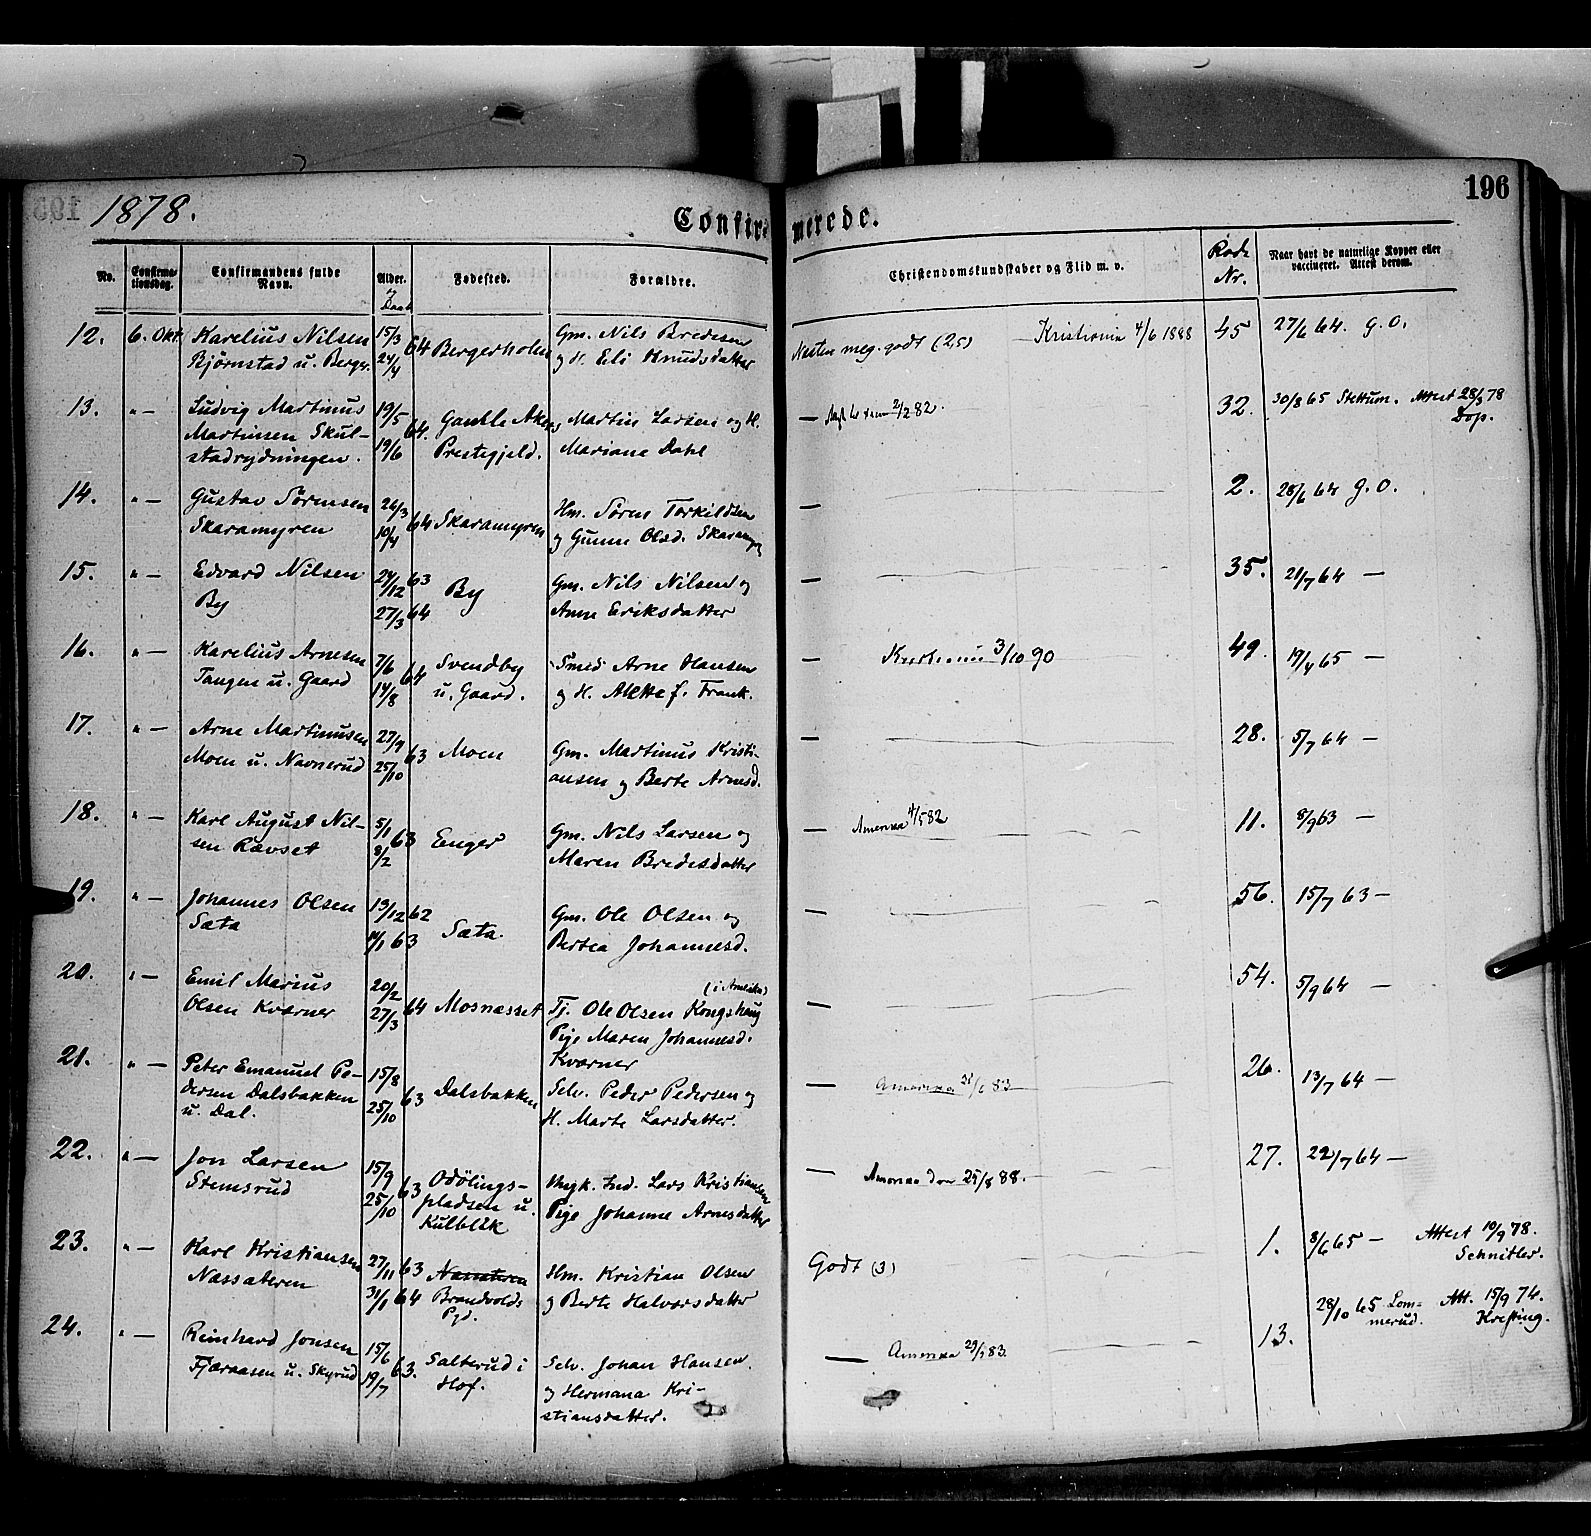 196
1878.
Confirmerede.
No. Confirmationsdag. Confirmandens fulde Navn. Alder. og Daab Fødested. Forældre. Christendomskundskaber og Flid m. v. Rode Nr. Naar havt de naturlige Kopper eller vaccineret. Attest derom.
12. 6. Okt. Karelius Nilsen 15/3 64 Bergerholm Gm. Nils Bredesen Nesten meg. godt (2,5) Kristiania 4/6 1888 45 27/6 64. g. O.
Bjørnstad u. Berger. 24/4 og H. Eli Knudsdatter
13. " — Ludvig Martinus 19/5 64. Gamle Akers Martin Larsen og H. — 2/2 82. 32. 30/8 65 Attest 28/3 78
Martinsen Skul- 19/6 Prestegjeld. Mariane Dahl Dop.
stadrydningen.
14. " — Gustav Sørensen 26/3 64 Skaramyren Hm. Søren Torkildsen — 2. 28/6 64 g. O.
Skaramyren 10/4 og Gunne Olsd. Skaramyr
15. " — Edvard Nilsen 29/12 63 By Gm. Nils Nilsen og — 35. 21/7 64 —
By 27/3 64 Anne Eriksdatter
16. " — Karelius Arnesen 7/6 64 Svendby Smed Arne Hansen — 3/10 90 49. 19/4 65 —
Tangen u. Gaard 14/8 u. Gaard. og H. Alette f. Frank.
17. " — Arne Martinusen 27/9 63 Moen Gm. Martinus Kristi- — 28. 5/7 64 —
Moen u. Navnerud 25/10 ansen og Berte Arnesd.
18. " — Karl August Nil- 5/1 63 Enger Gm. Nils Larsen og — Amerika 4/5 82 11. 8/9 63 —
sen Ravset 8/2 Maren Bredesdatter
19. " — Johannes Olsen 13/12 62 Sæta. Gm. Ole Olsen og — 56. 15/7 63 —
Sæta 11/1 63 Bertea Johannesd.
20. " — Emil Marius 20/2 64 Mosnæsset (i Amerika) — 54. 5/9 64 —
Olsen Kværner 27/3 Tj. Ole Olsen Kongshaug
Pige Maren Johannesd.
Kværner
21. " — Peter Emanuel Pe- 15/8 63 Dalsbakken Selv. Peder Pedersen og — Amerika 83 26. 13/7 64 —
dersen Dalsbakken 25/10 H. Marte Larsdatter.
u. Dal.
22. " — Jon Larsen 15/9 63 Odølings- Ungk. Ind. Lars Kristiansen — Amerika den 25/8 88. 27. 22/7 64 —
Stemsrud 25/10 pladsen u. Pige Johanne Arnesdatter
Kulblik
23. " — Karl Kristiansen 27/11 63 Næssæteren Hm. Kristian Olsen Godt (3) 1. 8/6 65 — Attest 10/9 78.
Næssæteren 31/1 64 Brandvolds Pgd. og Berte Halvorsdatter Schnitler.
24. " — Reinhard Jonsen 15/6 63. Salterud i Selv. Johan Hansen — Amerika 83. 13. 28/10 65 Lom- Att. 15/9 74.
Fjæraasen u. Skyrud 19/7 Hof. og Hermana Kri- merud. Krefting.
stiansdatter.